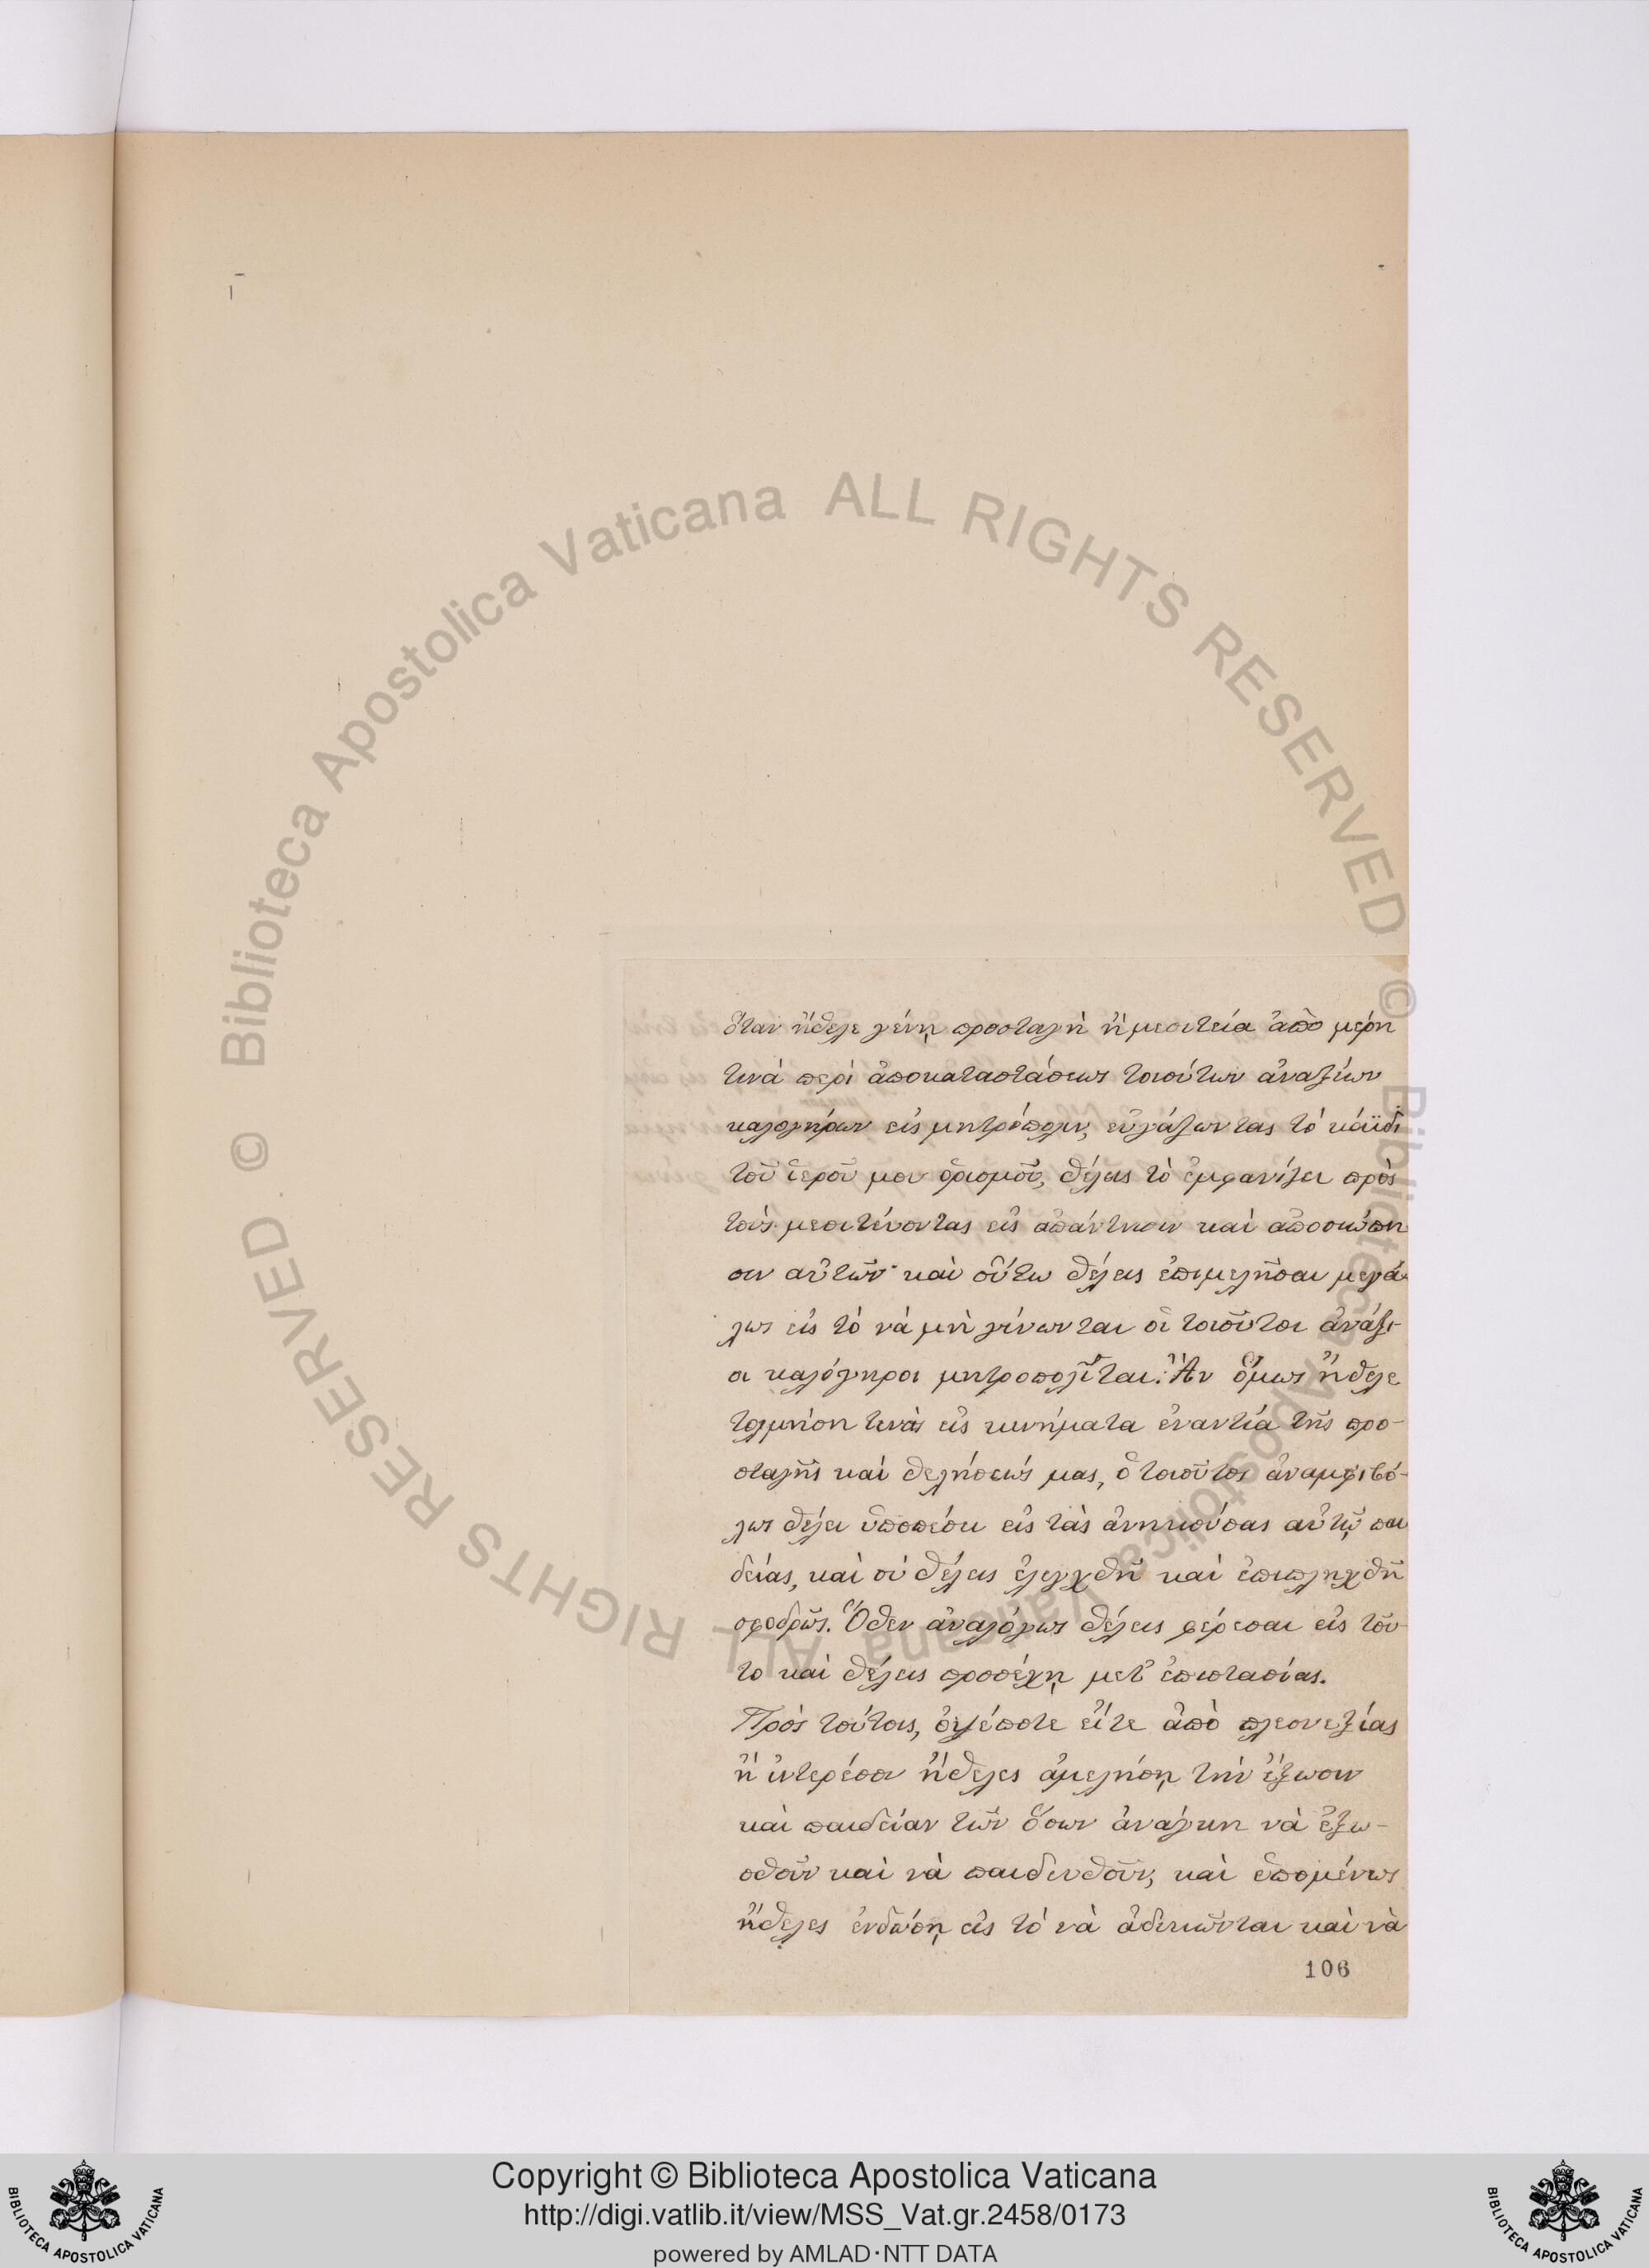 ὅταν ἤθελε γένῃ προσταγὴ ἢ μεσιτεία ἀπὸ μέρη
τινά περὶ ἀποκαταστάσεως τοιούτων ἀναξίων
καλογήρων εἰς μητρόπολιν, εὐγάζωντας τὸ κάϊδι
τοῦ ἱεροῦ μου ὁρισμοῦ, θέλεις τὸ ἐμφανίζει πρὸς
τοὺς μεσιτεύοντας εἰς ἀπάντησιν καὶ ἀποσιώπη
σιν αὐτῶν· καὶ οὕτω θέλεις ἐπιμελῆσαι μεγά-
λως εἰς τὸ νὰ μὴ γίνωνται οἱ τοιοῦτοι ἀνάξι-
οι καλόγηροι μητροπολῖται: Ἂν ὅμως ἤθελε
τολμήσῃ τινὰς εἰς κινήματα ἐναντία τῆς προ-
σταγῆς καὶ θελήσεώς μας, ὁ τοιοῦτος ἀναμφιβό-
λως θέλει ὑποπέσει εἰς τὰς ἀνηκούσας αὐτῷ παι
δείας, καὶ σὺ θέλεις ἐλεγχθῆ καὶ ἐπιπληχθῆ
σφοδρῶς. Ὅθεν ἀναλόγως θέλεις φέρεσαι εἰς τοῦ-
το καὶ θέλεις προσέχῃ μετ' ἐπιστασίας.
Πρὸς τούτοις, ὁψέποτε εἴτε ἀπὸ πλεονεξίας
ἢ ἰντερέσον ἤθελες ἀμελήσῃ τὴν ἔξωσιν
καὶ παιδείαν τῶν ὅσων ἀνάγκη νὰ ἐξω-
σθοῦν καὶ νὰ παιδευθοῦν, καὶ ἑπομένως
ἤθελες ἐνδώσῃ εἰς τὸ νὰ ἀδικῶνται καὶ νὰ
106
© Biblioteca Apostolica Vaticana ALL RIGHTS RESERVED
© Biblioteca Apostolica Vaticana ALL RIGHTS RESERVED
Copyright © Biblioteca Apostolica Vaticana
http://digi.vatlib.it/view/MSS_Vat.gr.2458/0173
powered by AMLAD·NTT DATA
BIBLIOTECA APOSTOLICA VATICANA
BIBLIOTECA APOSTOLICA VATICANA